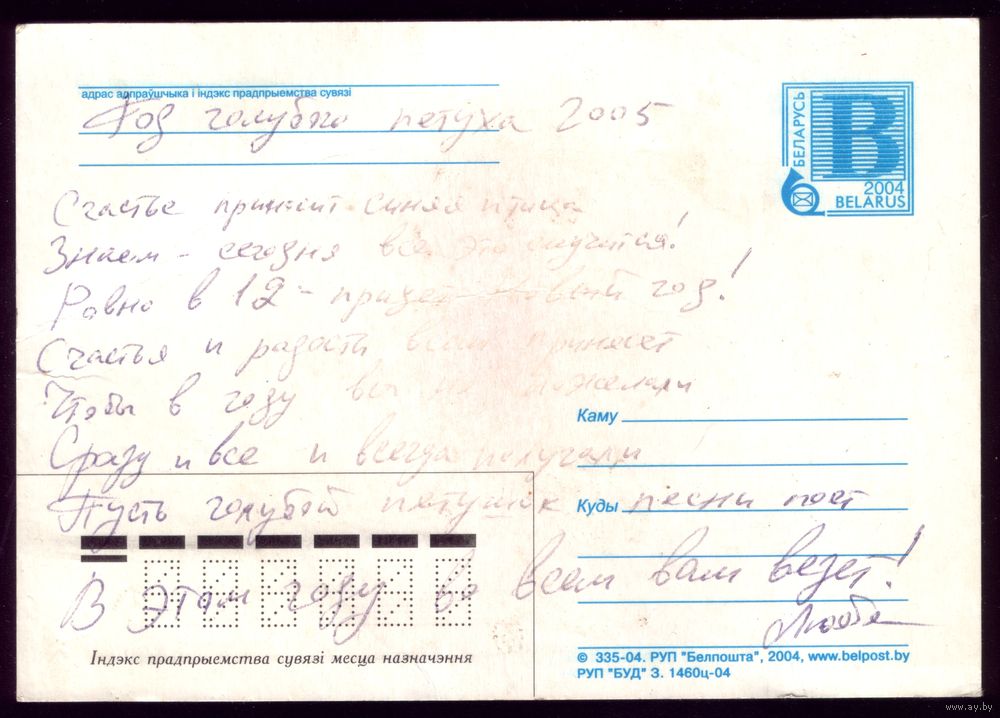 адрас адпраўшчыка і індэкс прадпрыемства сувязі
Год голубого петуха 2005
БЕЛАРУСЬ
B
2004
BELARUS
Счастье приносит синяя птица
Знаем - сегодня все это случится!
Ровно в 12 - придет новый год!
Счастья и радости всем принесет
Чтобы в году вы не пожелали
Сразу и все и всегда получали
Пусть голубой петушок песни поет
В этом году во всем вам везет!
Люба
Каму
Куды
Індэкс прадпрыемства сувязі месца назначэння
© 335-04. РУП "Белпошта", 2004, www.belpost.by
РУП "БУД" З. 1460ц-04
www.ay.by